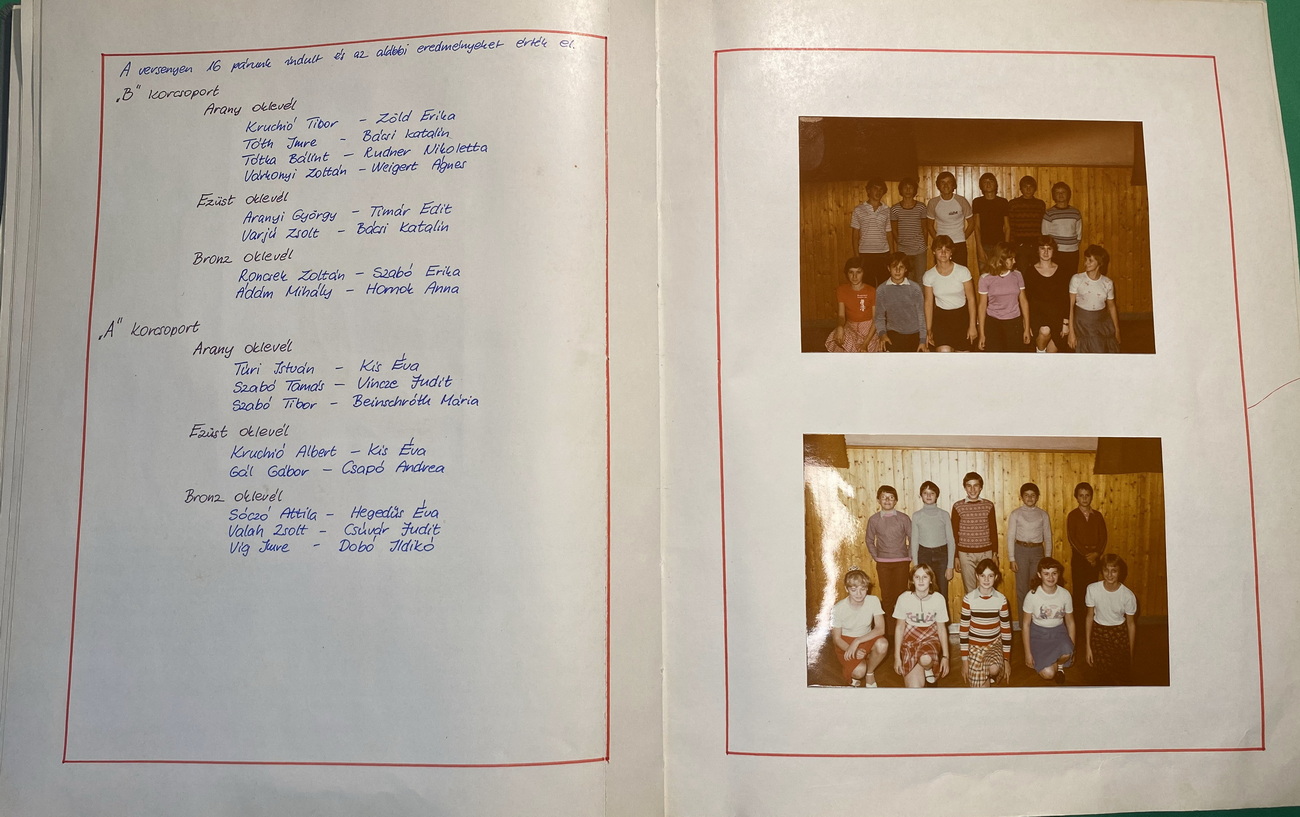 A versenyen 16 párunk indult és az alábbi eredményeket érték el.
„B" korcsoport
Arany oklevél
Kruchió Tibor – Zöld Erika
Tóth Imre – Bácsi Katalin
Tótka Bálint – Rudner Nikoletta
Várkonyi Zoltán – Weigert Ágnes
Ezüst oklevél
Aranyi György – Tímár Edit
Varjú Zsolt – Bácsi Katalin
Bronz oklevél
Roncsek Zoltán – Szabó Erika
Ádám Mihály – Homok Anna
„A" korcsoport
Arany oklevél
Túri István – Kis Éva
Szabó Tamás – Vincze Judit
Szabó Tibor – Beinschróth Mária
Ezüst oklevél
Kruchió Albert – Kis Éva
Gál Gábor – Csapó Andrea
Bronz oklevél
Sóczó Attila – Hegedűs Éva
Valah Zsolt – Csúvár Judit
Víg Imre – Dobó Ildikó